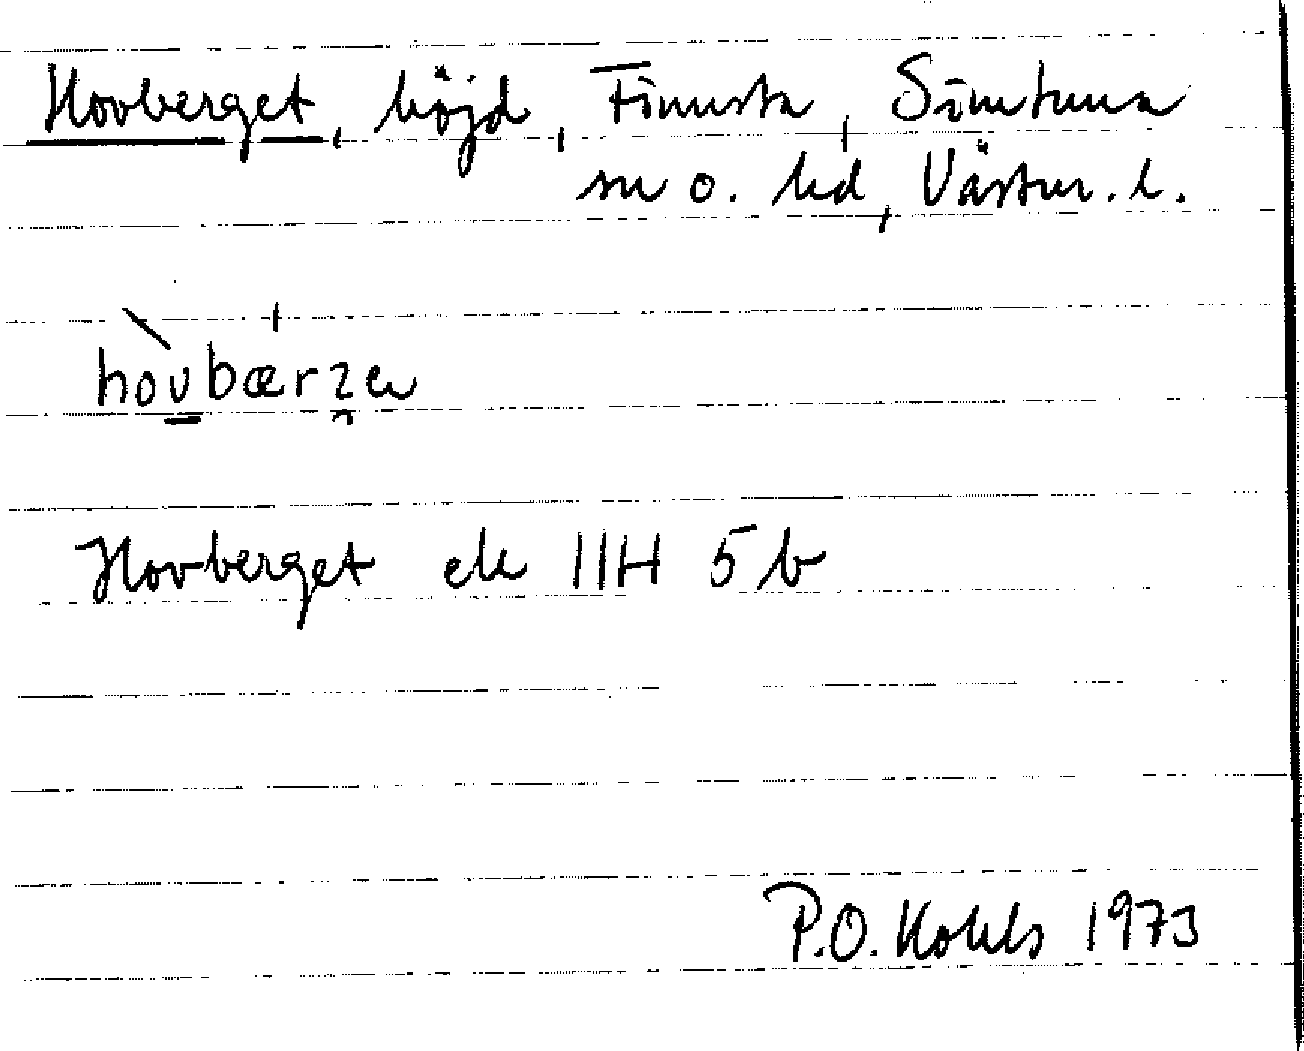 Hovberget, höjd, Finnsta, Simtuna
sn o. hd, Västm. l.
hovbærʒa
Hovberget ek 11H 5b
P.O. Kohls 1973